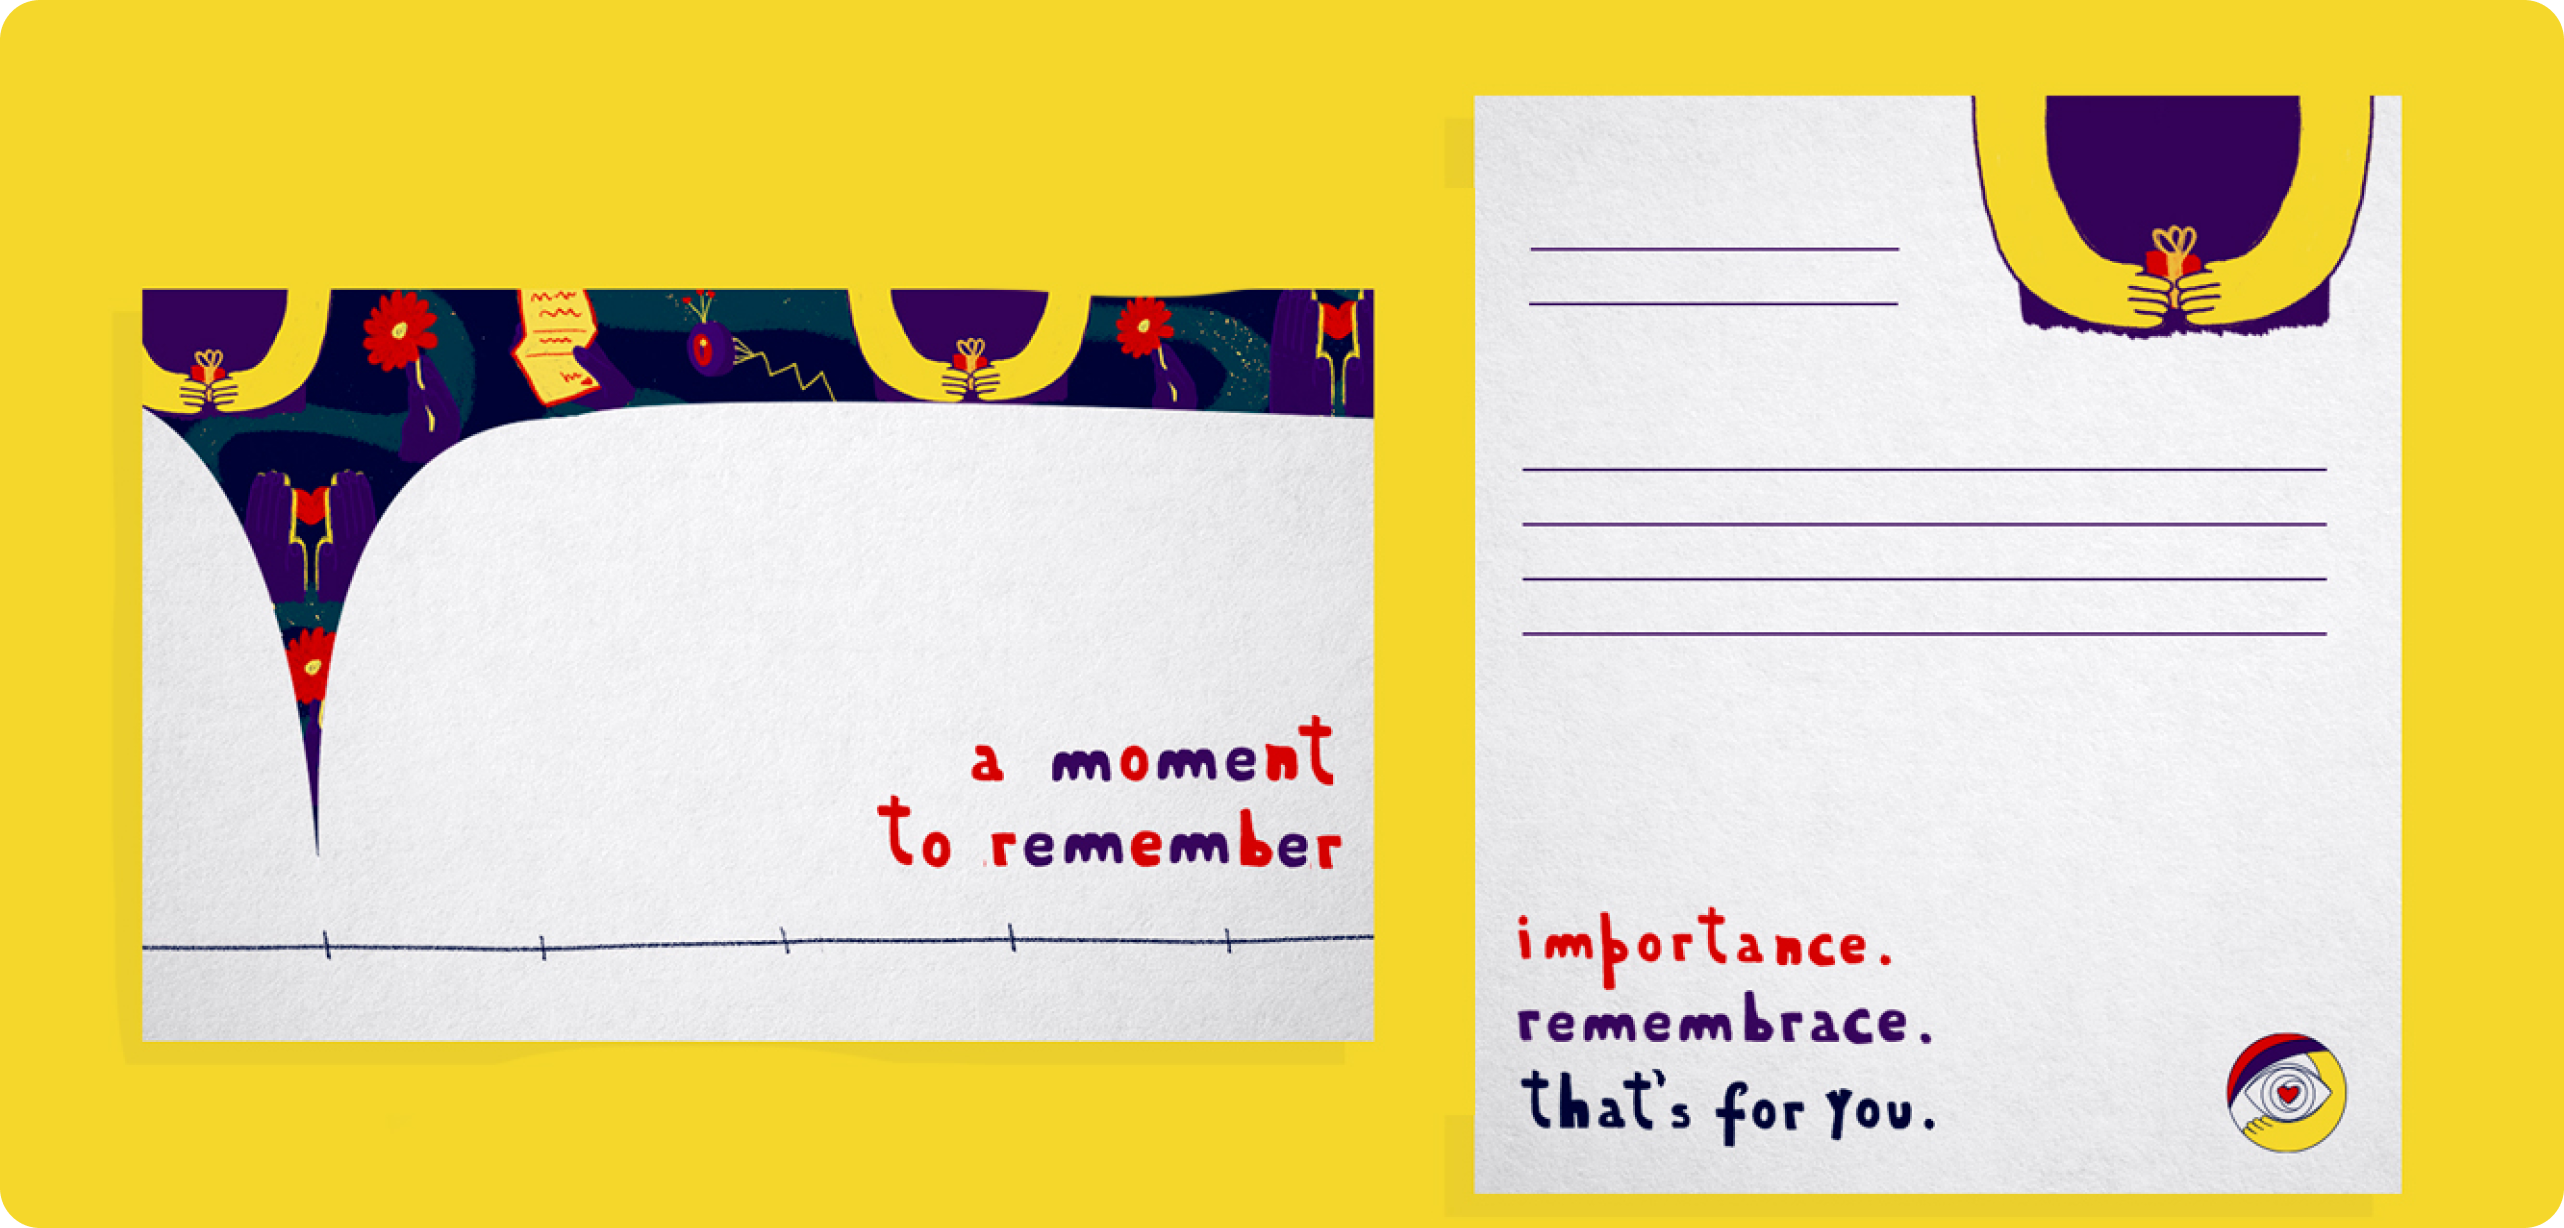 a moment
to remember
importance.
remembrace.
that's for you.